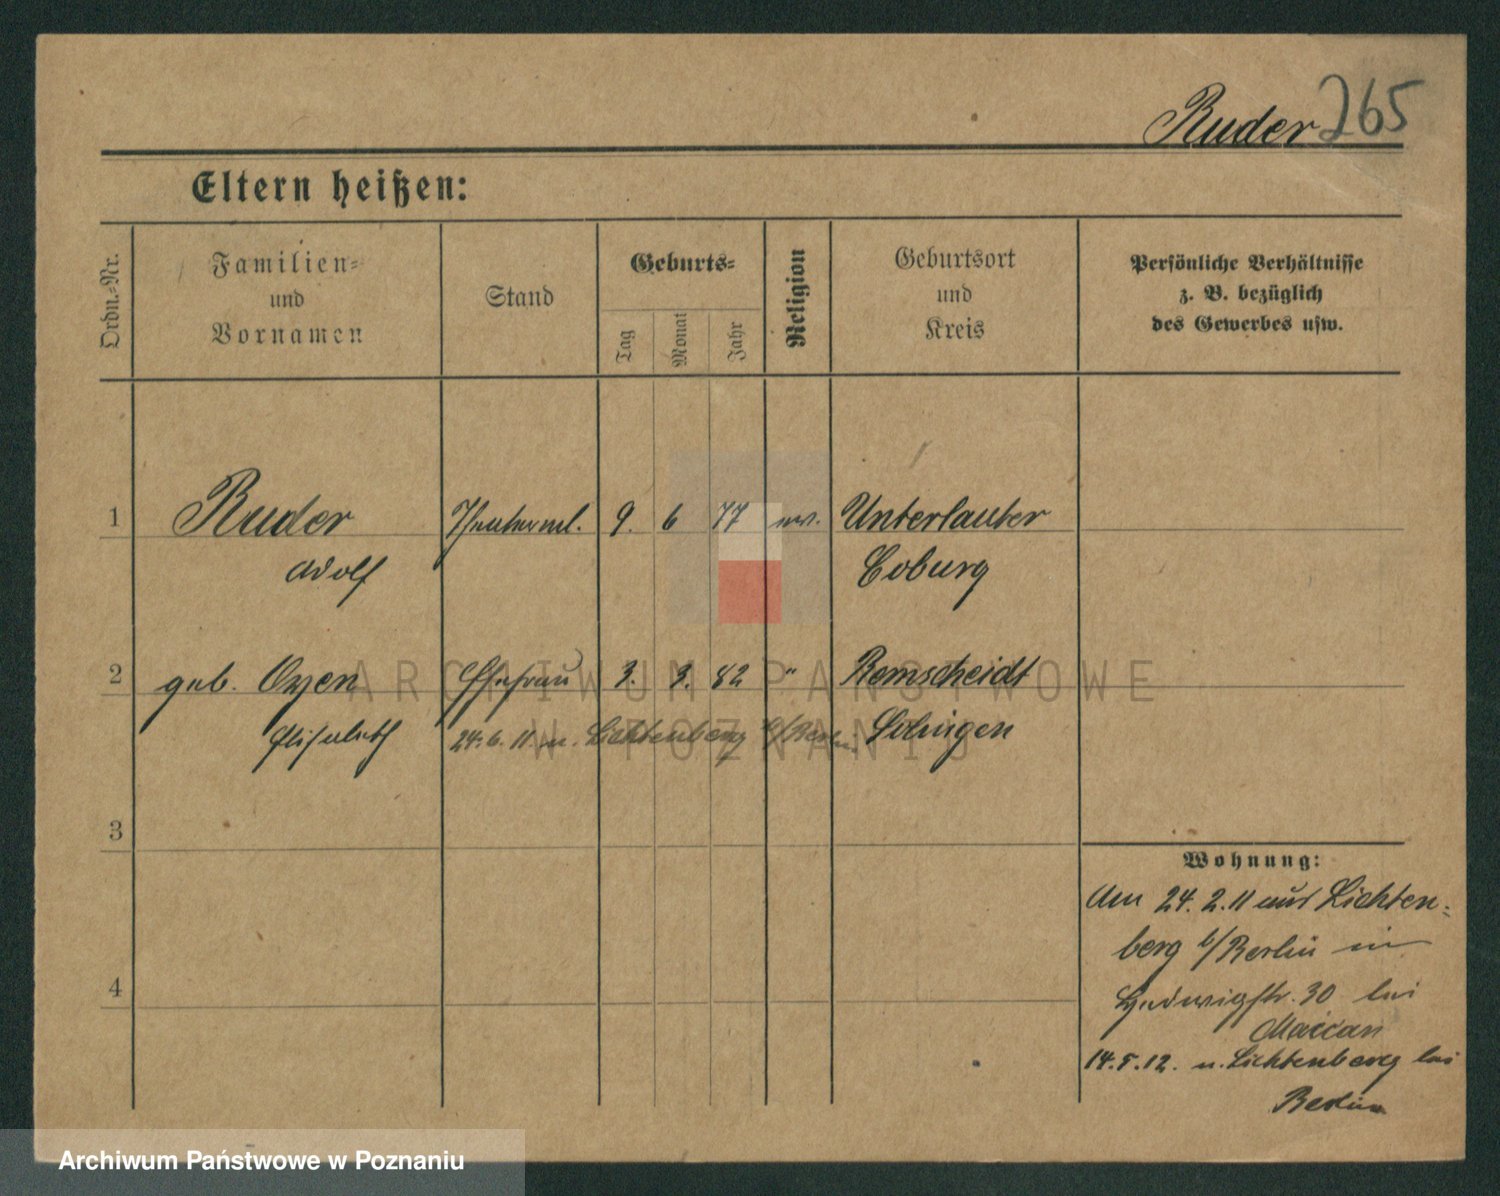 Ruder 265
Eltern heißen:
Ordn.-Nr.
Familien-
und
Vornamen
Stand
Geburts-
Tag
Monat
Jahr
Religion
Geburtsort
und
Kreis
Persönliche Verhältnisse
z. B. bezüglich
des Gewerbes usw.
1 Ruder 9. 6 77 ev. Unterlauter
Adolf Coburg
2 geb. Ehefrau 3. 9. 82 " Remscheidt
Elisabeth 24. 6. 11. n. Lichtenberg b/Berlin Solingen
3
4
Wohnung:
Am 24. 2. 11 aus Lichten-
berg b/Berlin in
Hedwigstr. 30 bei
14. 5. 12. n. Lichtenberg bei
Berlin
ARCHIWUM PAŃSTWOWE
W POZNANIU
Archiwum Państwowe w Poznaniu